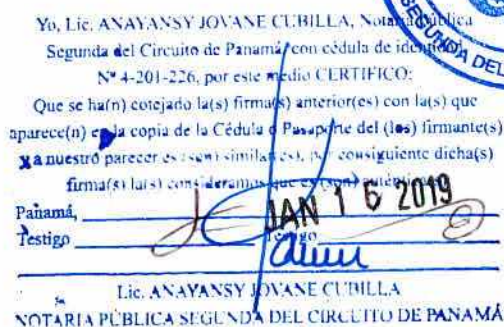 Yo, Lic. ANAYANSY JOVANE CUBILLA, Notaria Pública
Segunda del Circuito de Panamá, con cédula de identidad
N° 4-201-226, por este medio CERTIFICO:
Que se ha(n) cotejado la(s) firma(s) anterior(es) con la(s) que
aparece(n) en la copia de la Cédula o Pasaporte del (los) firmante(s)
y a nuestro parecer es (son) similar(es), por consiguiente dicha(s)
firma(s) la(s) consideramos que es (son) auténtica(s)
JAN 16 2019
Panamá,
Testigo Testigo
Lic. ANAYANSY JOVANE CUBILLA
NOTARIA PÚBLICA SEGUNDA DEL CIRCUITO DE PANAMÁ
SEGUNDA DEL